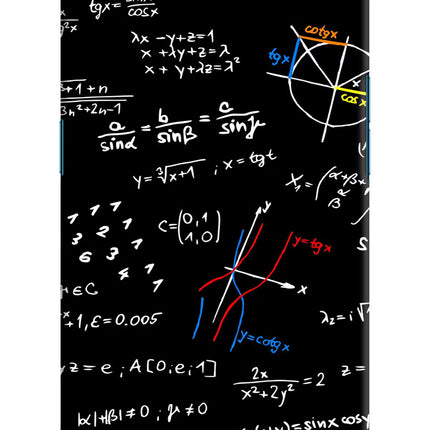 tgx = sinx/cosx
g²x
λx - y + z = 1
x + λy + z = λ
x + y + λz = λ²
cotgx
tgx
x
cosx
3+1+n
3n²+2n-1
a/sinα = b/sinβ = c/sinμ
y = ∛(x+1) ; x = tgt
X₁ = (α+β+
α
β
1 1 1
3 2 1
6 3 1
4 1
1
C = (0,1
1,0)
y
y = tgx
x
y = cotgx
+1, ε = 0.005
λ₂ = i√
y z = e ; A[0; e; 1]
2x/(x²+2y²) = 2
z =
|α|+|β| ≠ 0 ; μ ≠ 0
= sinx cosy